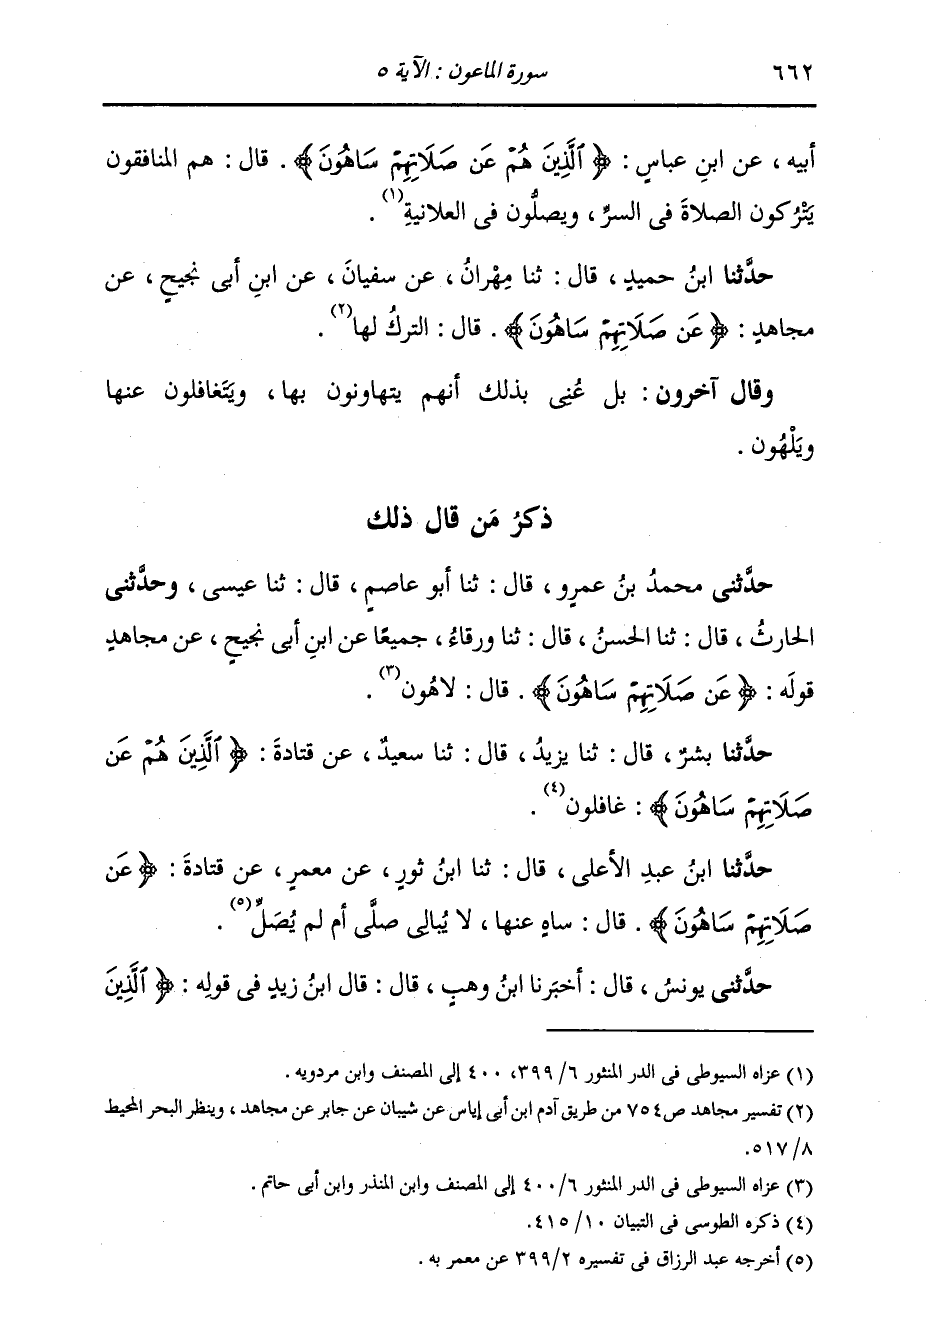 ٦٦٢ سورة الماعون : الآية ٥
أبيه ، عن ابنِ عباسٍ : ﴿ ٱلَّذِينَ هُمْ عَن صَلَاتِهِمْ سَاهُونَ ﴾ . قال : هم المنافقون
يَتْرُكون الصلاةَ فى السرِّ ، ويصلُّون فى العلانيةِ(١) .
حدَّثنا ابنُ حميدٍ ، قال : ثنا مِهْرانُ ، عن سفيانَ ، عن ابنِ أبى نجيحٍ ، عن
مجاهدٍ : ﴿ عَن صَلَاتِهِمْ سَاهُونَ ﴾ . قال : التركُ لها(٢) .
وقال آخرون : بل عُنِى بذلك أنهم يتهاونون بها ، ويَتَغافلون عنها
ويَلْهُون .
ذكرُ مَن قال ذلك
حدَّثنى محمدُ بنُ عمرٍو ، قال : ثنا أبو عاصمٍ ، قال : ثنا عيسى ، وحدَّثنى
الحارثُ ، قال : ثنا الحسنُ ، قال : ثنا ورقاءُ ، جميعًا عن ابنِ أبى نجيحٍ ، عن مجاهدٍ
قولَه : ﴿ عَن صَلَاتِهِمْ سَاهُونَ ﴾ . قال : لاهُون(٣) .
حدَّثنا بشرٌ ، قال : ثنا يزيدُ ، قال : ثنا سعيدٌ ، عن قتادةَ : ﴿ ٱلَّذِينَ هُمْ عَن
صَلَاتِهِمْ سَاهُونَ ﴾ : غافلون(٤) .
حدَّثنا ابنُ عبدِ الأعلى ، قال : ثنا ابنُ ثورٍ ، عن معمرٍ ، عن قتادةَ : ﴿ عَن
صَلَاتِهِمْ سَاهُونَ ﴾ . قال : ساهٍ عنها ، لا يُبالِى صلَّى أم لم يُصَلِّ(٥) .
حدَّثنى يونسُ ، قال : أخبَرنا ابنُ وهبٍ ، قال : قال ابنُ زيدٍ فى قولِه : ﴿ ٱلَّذِينَ
(١) عزاه السيوطى فى الدر المنثور ٦/ ٣٩٩، ٤٠٠ إلى المصنف وابن مردويه .
(٢) تفسير مجاهد ص٧٥٤ من طريق آدم ابن أبى إياس عن شيبان عن جابر عن مجاهد ، وينظر البحر المحيط
٨/ ٥١٧.
(٣) عزاه السيوطى فى الدر المنثور ٦/ ٤٠٠ إلى المصنف وابن المنذر وابن أبى حاتم .
(٤) ذكره الطوسى فى التبيان ١٠/ ٤١٥.
(٥) أخرجه عبد الرزاق فى تفسيره ٢/ ٣٩٩ عن معمر به .